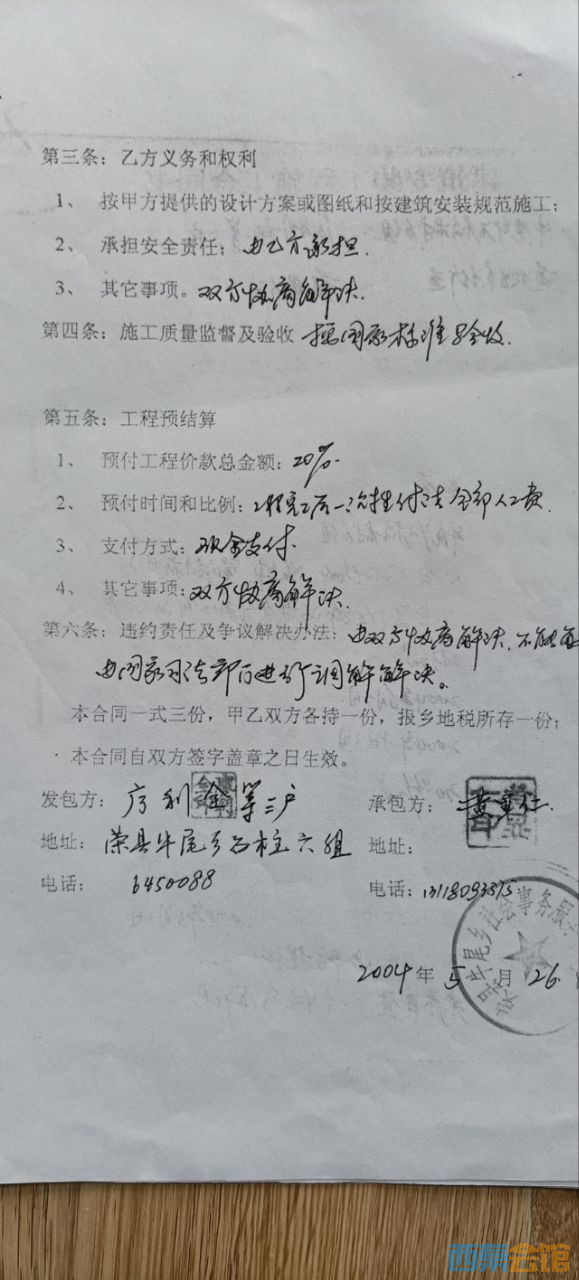 第三条：乙方义务和权利
1、 按甲方提供的设计方案或图纸和按建筑安装规范施工；
2、 承担安全责任；由乙方承担.
3、 其它事项。双方协商解决.
第四条：施工质量监督及验收 按国家标准验收.
第五条：工程预结算
1、 预付工程价款总金额：20%.
2、 预付时间和比例：工程完工后一次性付清全部人工费.
3、 支付方式：现金支付.
4、 其它事项：双方协商解决.
第六条：违约责任及争议解决办法：由双方协商解决.不能
由国家司法部门进行调解解决。
本合同一式三份，甲乙双方各持一份，报乡地税所存一份；
本合同自双方签字盖章之日生效。
发包方： 利金等三户
承包方：黄 仁.
地址：荣县牛尾乡石柱六组
地址：
电话： 6450088
电话：
牛尾乡社会事务服
2004年5月26
西祠会馆